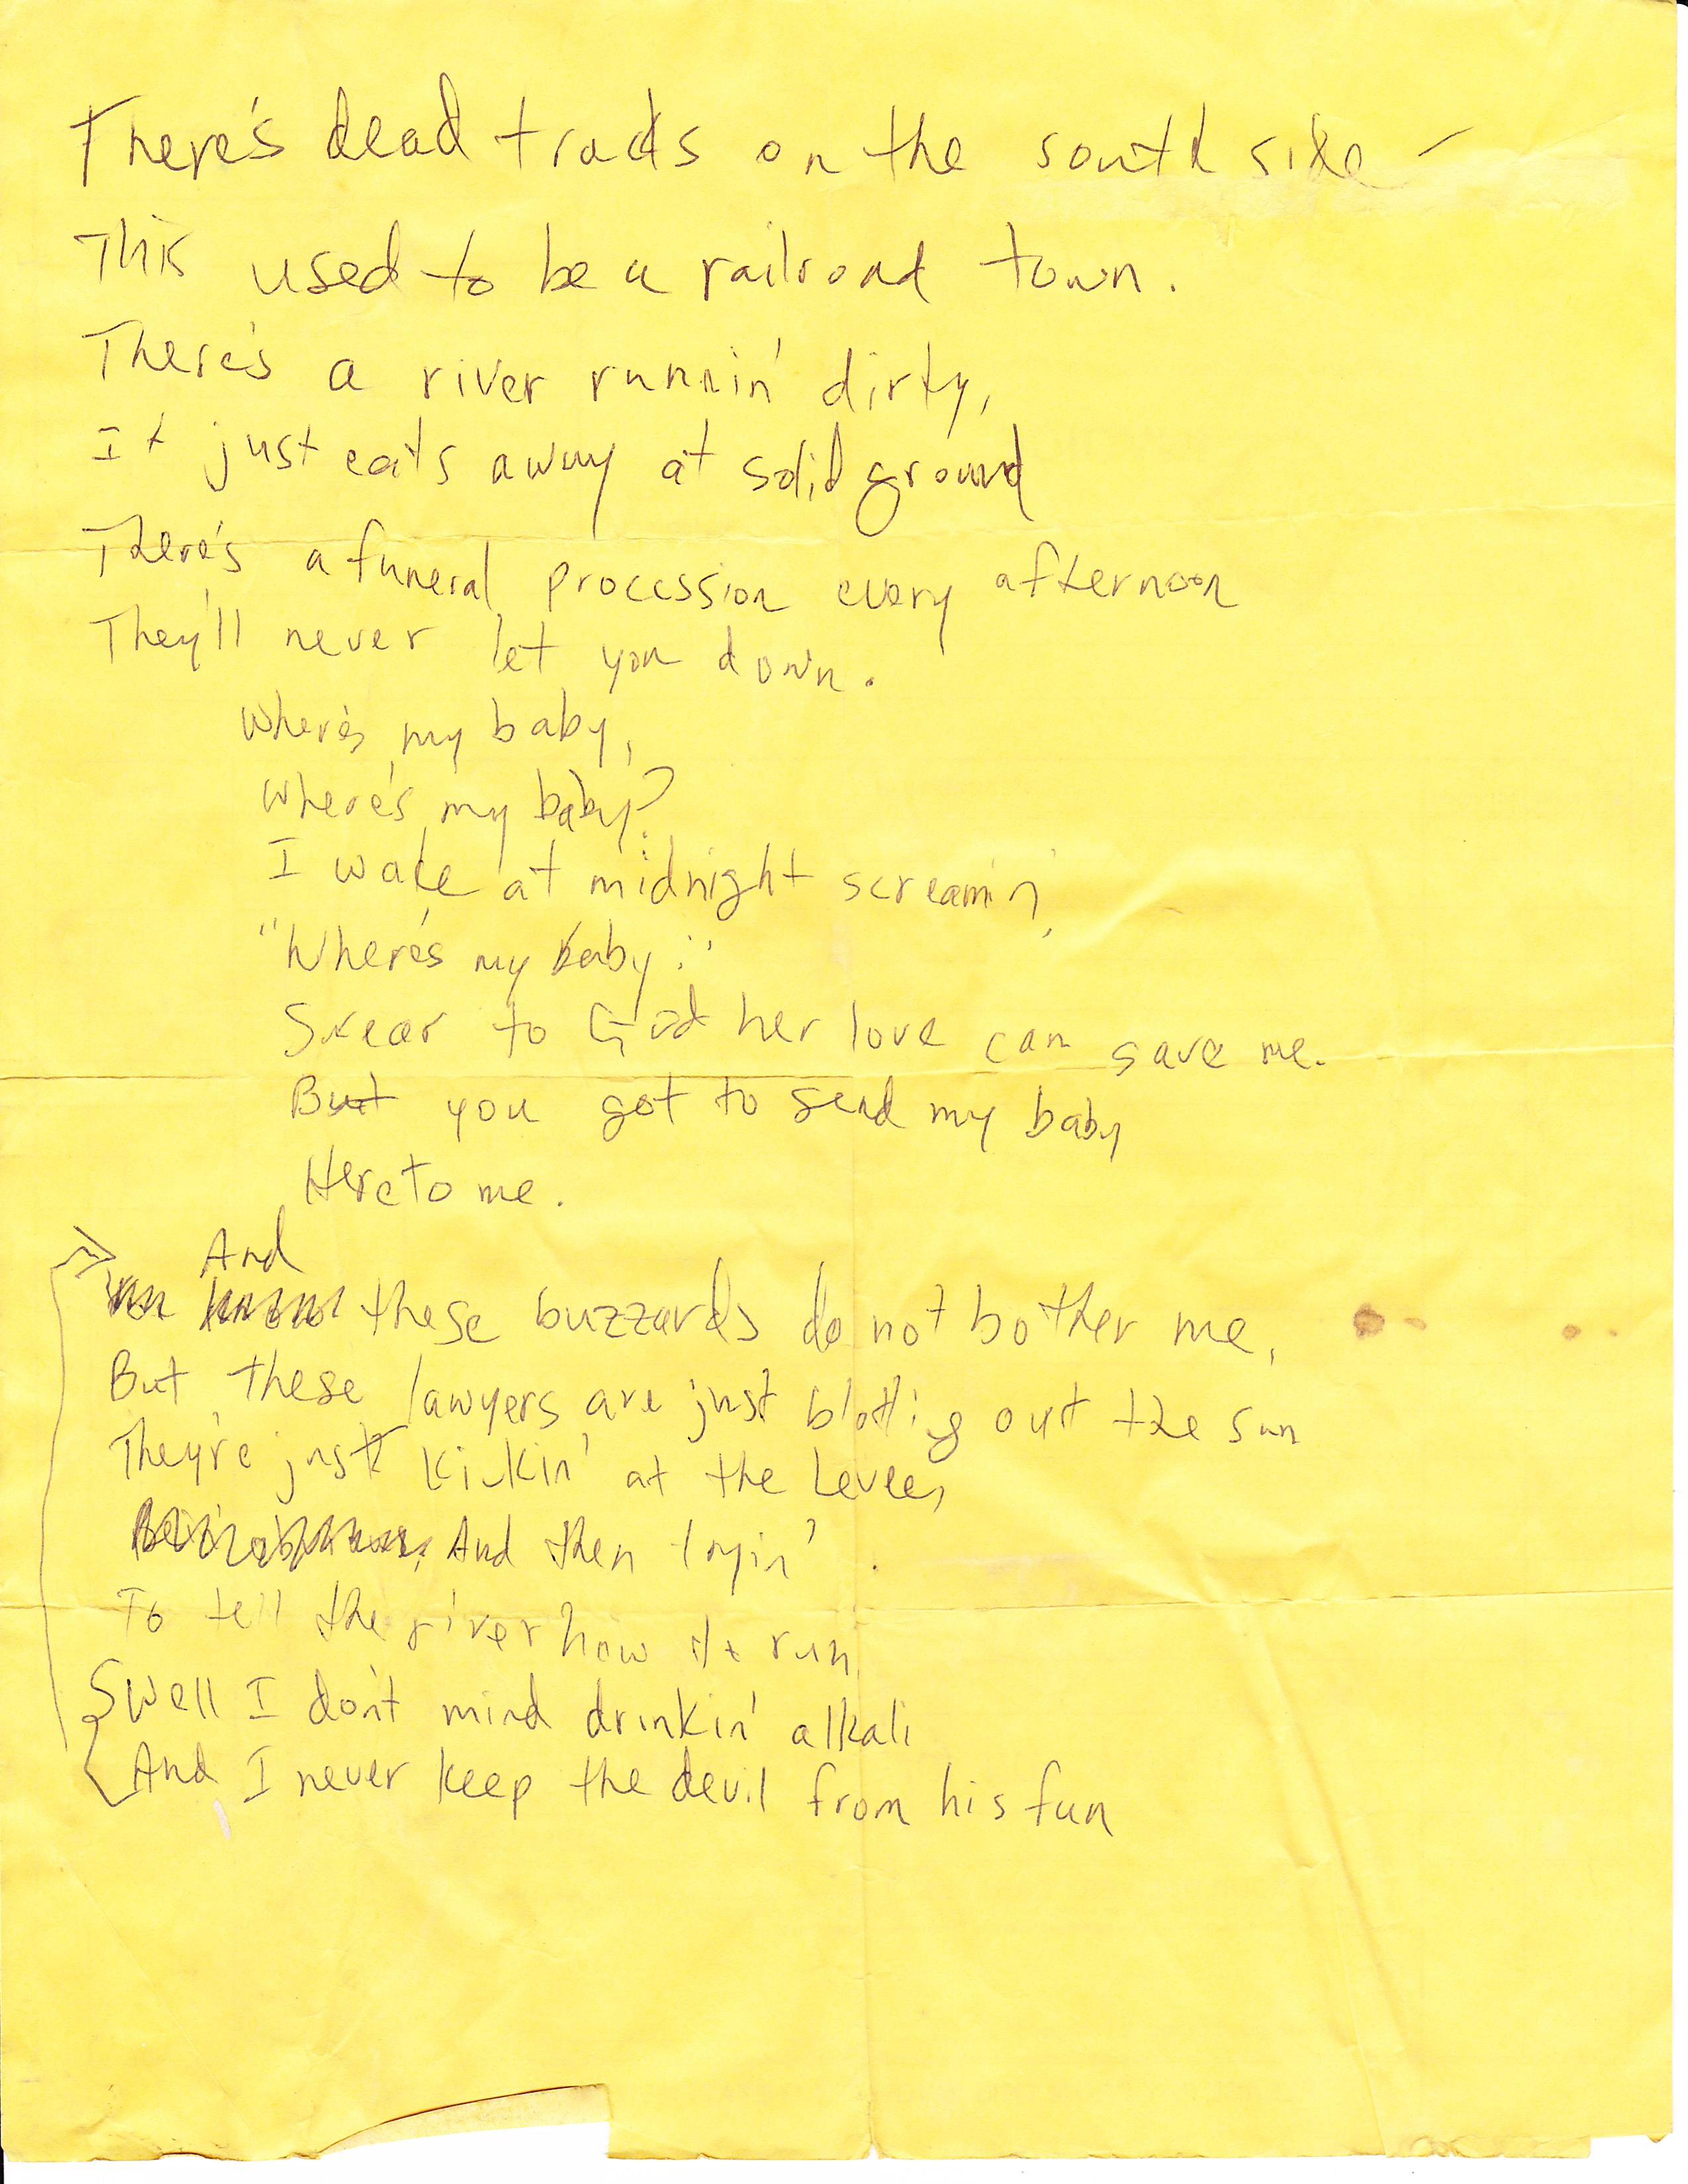 There's dead tracks on the south side -
This used to be a railroad town.
There's a river runnin' dirty,
It just eats away at solid ground
There's a funeral procession every afternoon
They'll never let you down.
Where's my baby,
Where's my baby?
I wake at midnight screamin',
"Where's my baby?"
Swear to God her love can save me.
But you got to send my baby
Here to me.
And
these buzzards do not bother me,
But these lawyers are just blotting out the sun
They're just kickin' at the Levee,
And then tryin'
To tell the river how it run
Well I don't mind drinkin' alkali
And I never keep the devil from his fun